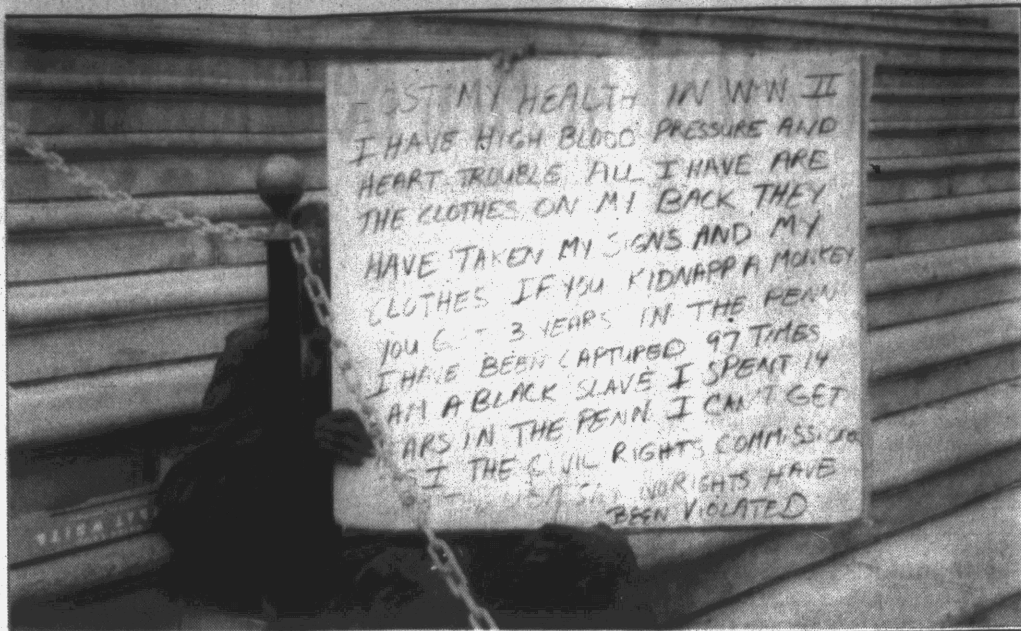 MY HEALTH IN II
I HAVE HIGH BLOOD PRESSURE AND
HEART TROUBLE ALL I HAVE ARE
THE CLOTHES ON MY BACK THEY
HAVE TAKEN MY SIGNS AND MY
CLOTHES IF YOU KIDNAPP A MONKEY
YOU 3 YEARS IN THE PENN
I HAVE BEEN CAPTURED 97 TIMES
AM A BLACK SLAVE I SPENT 14
ARS IN THE PENN I CAN'T GET
I THE CIVIL RIGHTS COMMISSION
NO RIGHTS HAVE
BEEN VIOLATED